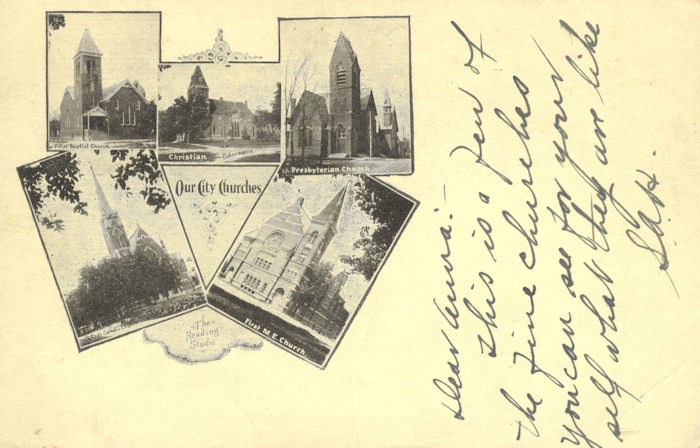 First Baptist Church
Christian Tabernacle
Presbyterian Church
Our City Churches
Catholic Church
First M.E. Church.
The
Reading
Studio
Dear Anna:-
This is a few of
the fine churches
you can see for your
self what they are like
S.A.H.